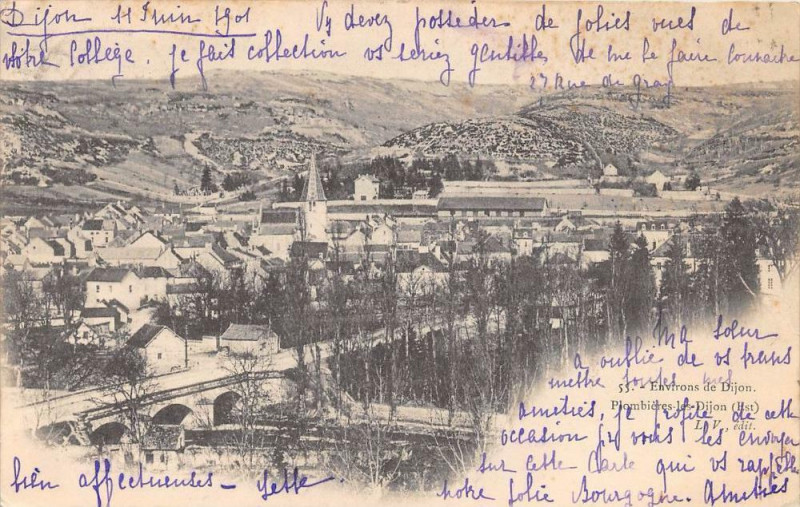 Dijon 11 Juin 1901 Vs devez posséder de jolies vues de
votre Collège. je fais collection vs seriez gentilles de me le faire connaitre
27 Rue de Gray
Ma Sœur
a oublié de vs trans
mettre toutes mes
amitiés, je profite de cette
occasion pr vous les envoyer
sur cette Carte qui vs rappelle
notre Jolie Bourgogne. Amitiés
bien affectueuses - Yette
55. - Environs de Dijon.
Plombières-les-Dijon (Est)
L. V., édit.